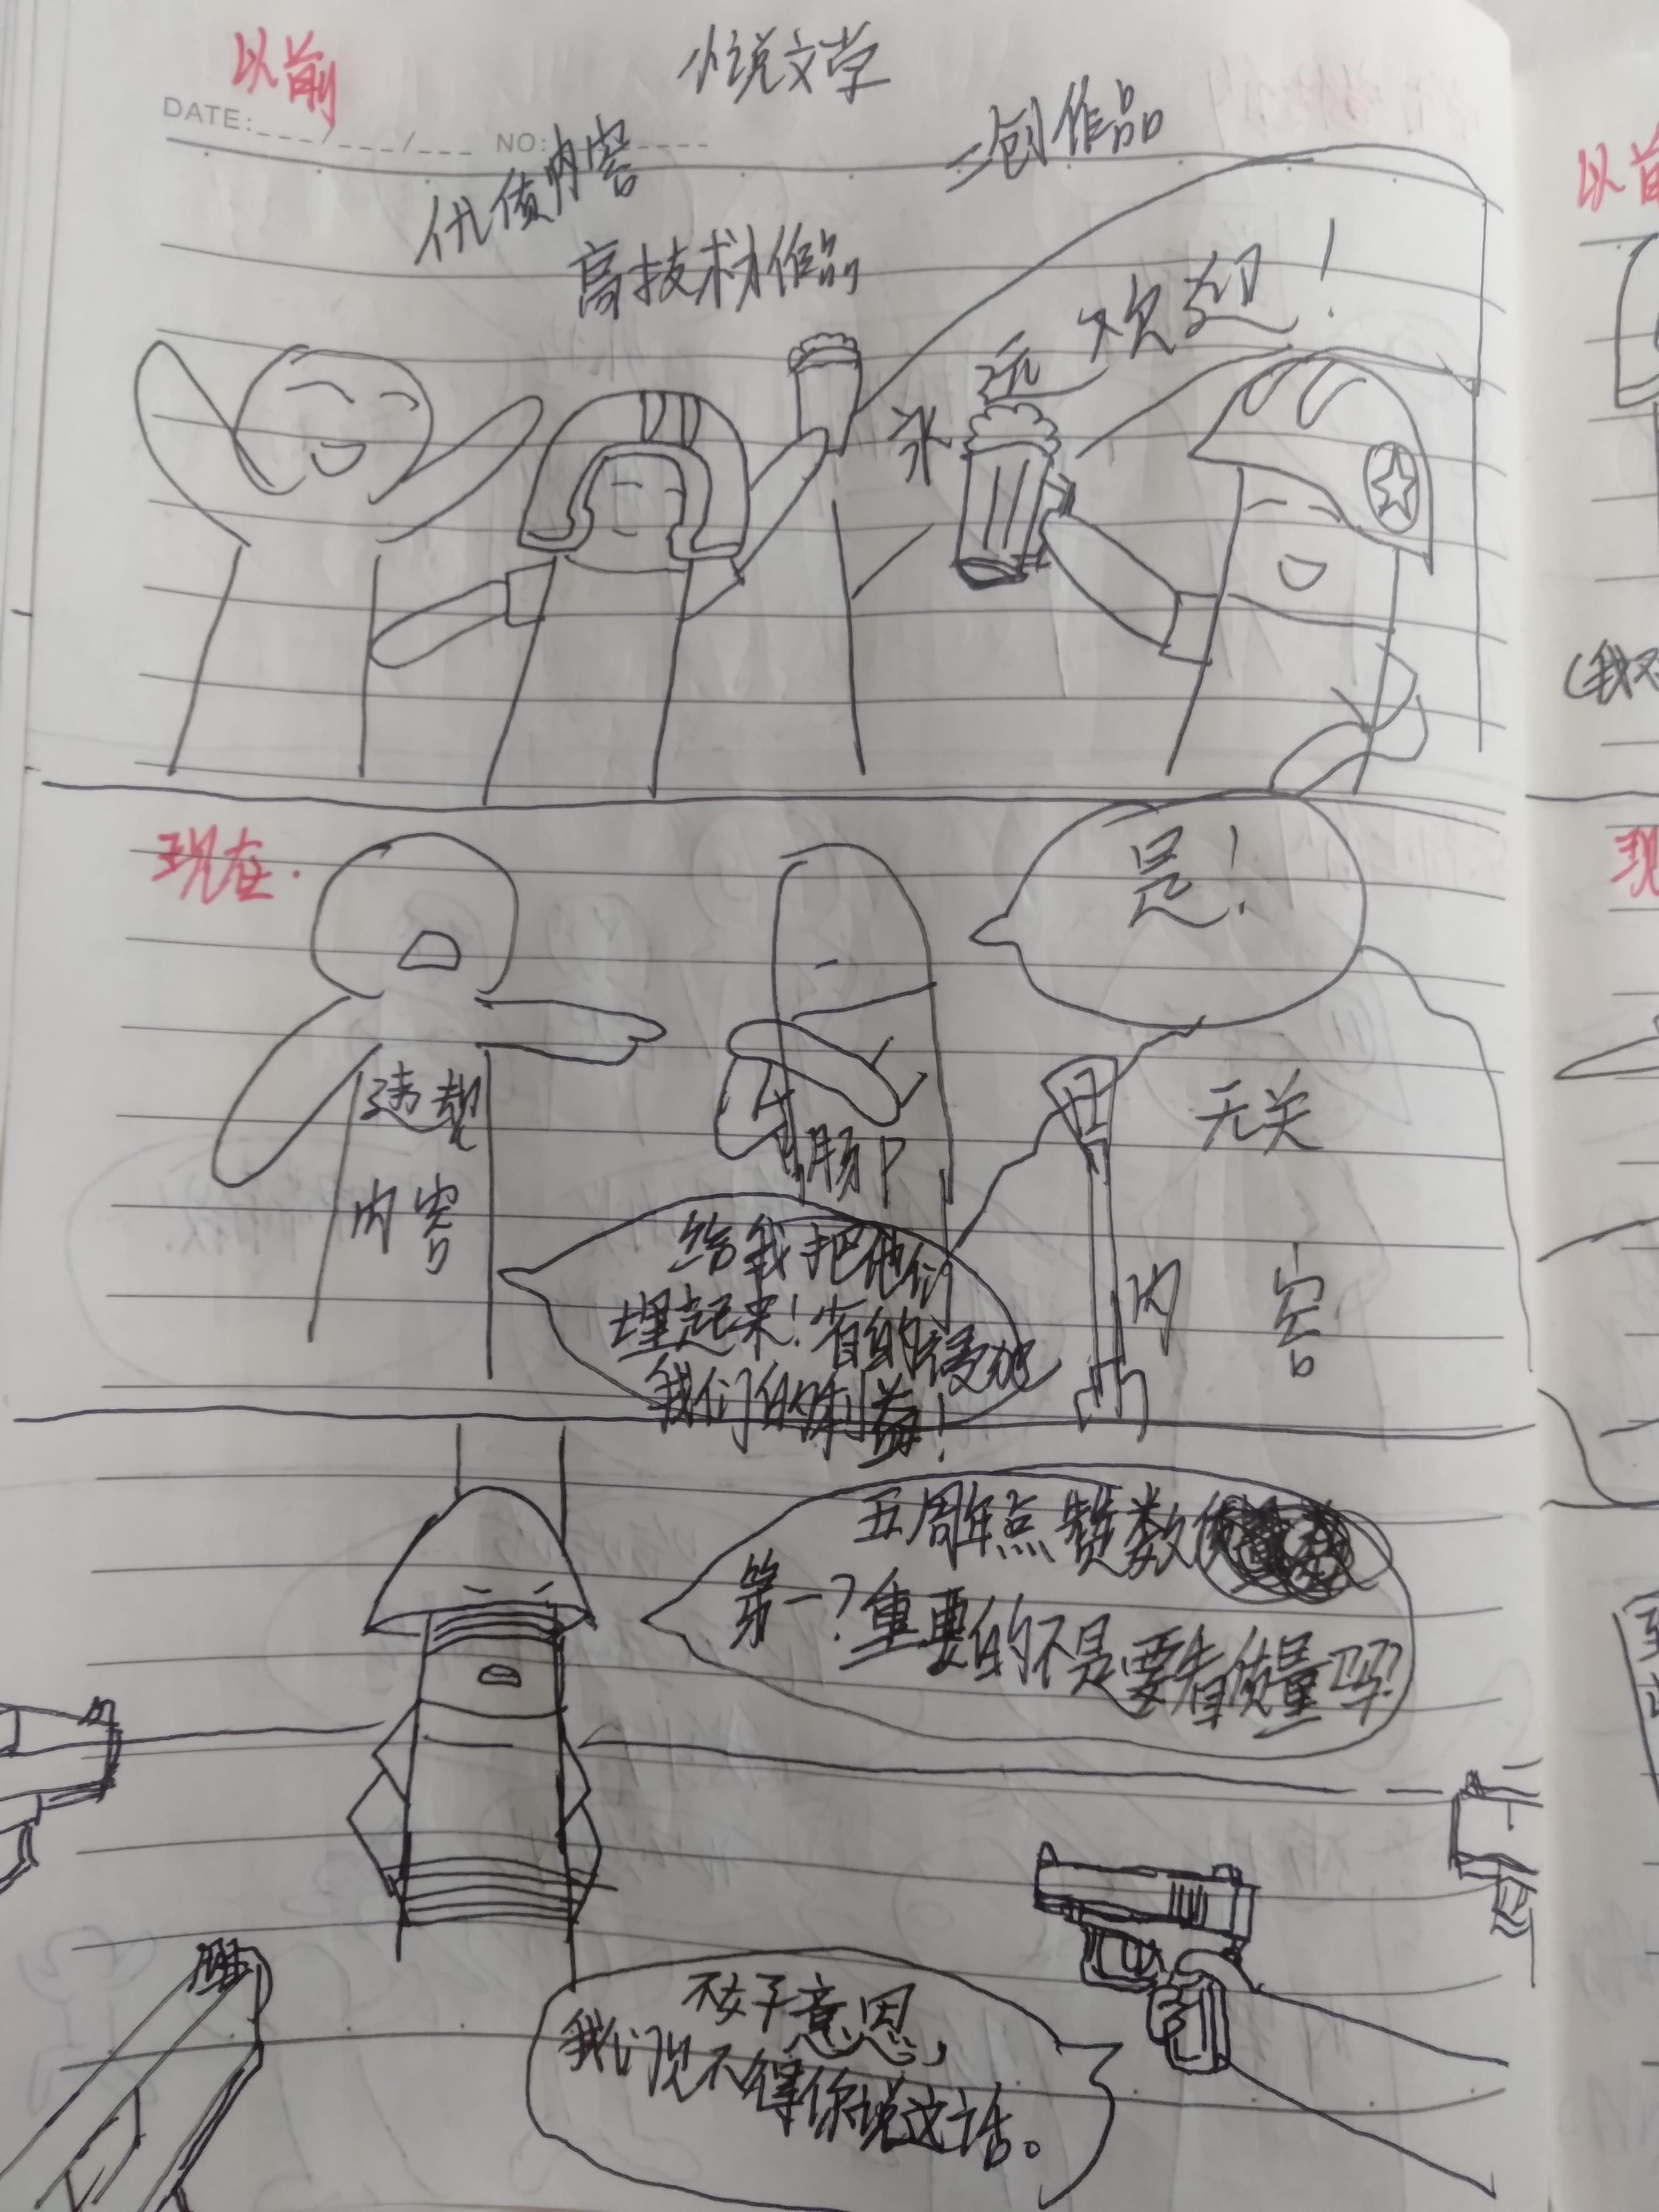 以前
小说文学
DATE:___/___/___ NO:
二创作品
优质内容
高技术力作品
永远欢迎！
现在.
是！
违规
内容
肠P
无关
内容
给我把他们
埋起来！省的侵犯
我们的利益！
五周年点赞数
第一？重要的不是要看质量吗？
不好意思，
我们见不得你说这话。
以前
(我不
现